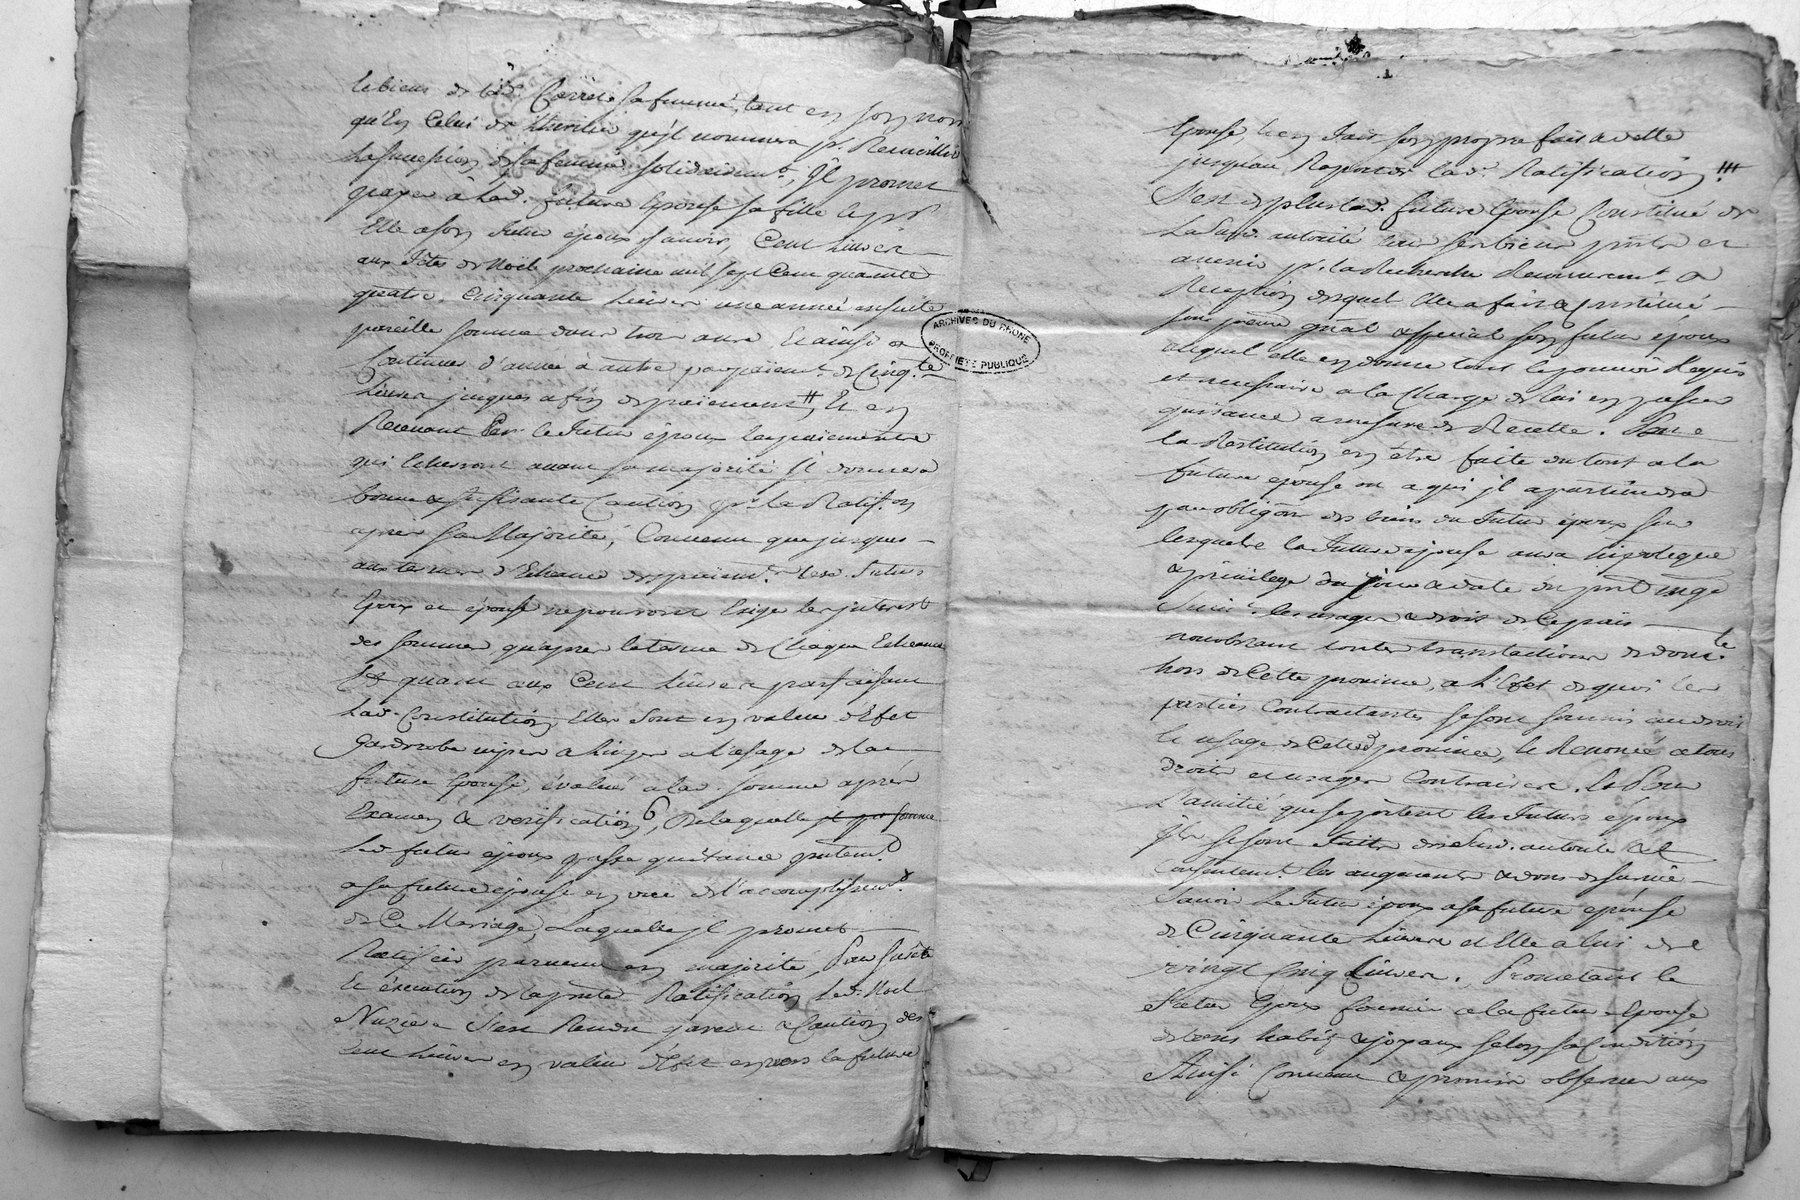 le bien de lad. sa femme, tant en son nom
qu'en Celui de l'heritier qu'jl nommera pr. Receuillir
la succession de sa femme solidairemt., Jl promet
payer à lad. future Epouse sa fille
Elle a son futur époux scavoir, Cent Livres
aux fêtes de Noël prochaine mil sept Cent quarante
quatre, Cinquante Livres une année ensuitte
pareille somme dans trois ans, Et ainsi a
Continuer d'année à autre payaiemt. de Cinqte.
Livres jusques a fin de paiement, Et en
Recevant Par le futur époux les paiements
qui Echerront avant sa majorité Jl donnera
bonne & suffisante Caution pr. la Ratifon
après sa Majorité, Convenu que jusques
aux termes d'Echeance des paiemt. lesd. futurs
Epoux et épouse ne pourront Exiger les jnterest
des sommes, qu'après le terme de Chaque Echeance
Et quant aux Cent Livres parfaisant
lad. Constitution Elles sont en valeur d'Efet
Garderobe nipes & linges a L'usage de la
future Epouse, évalués a lad. somme après
Examen & verification, De laquelle jl
led. futur époux passe quittance
a sa future épouse en vue de l'accomplissemt.
de Ce Mariage, Laquelle jl promet
Ratifier parvenu en majorité, Pour sureté
Et éxécution de la pnte Ratification led. Noel
s'est Rendu & Caution des
Cent Livres en valeur d'Efet envers la future
Epouse, Et en fait son propre fait & dette
jusqu'au Raport de lad. Ratification
S'est de plus lad. future Epouse Constitué de
La susd. autorité tous ses biens pnts et
avenir pr. la Recherche Recouvremt. &
Reception desquel Elle a fait & Constitué
son procur gnal & special son futur époux
auquel elle en donne tout le pouvoir Requis
et necessaire a la Charge de lui en passer
quitance a mesure de Recette. Pour
la Restitution en être faite du tout a la
future épouse ou a qui jl apartiendra
par obligaon des biens du futur époux sur
lesquels la future épouse aura hipoteque
& privilege du jour & date du pnt mge
Suivt. les usages & droit de Ce païs
nonobstant toutes translations de domle.
hors de Cette province, a L'Efet de quoi les
parties Contractantes se sont soumis au droit
Et usage de Cetted. province, Et Renoncé a tous
droits et usages Contraires. Et Pour
L'amitié que se portent les futurs époux
Jls se sont faits de susd. autorité &
Consentemt. les augments & dons de survie
Savoir Le futur époux a sa future épouse
de Cinquante Livres et Elle a lui de
vingt Cinq Livres. Prometant le
futur Epoux fournir a la future Epouse
de bons habits & joyaux selon sa Condition
Ainsi Convenu & promis observer aux
ARCHIVES DU RHONE
PROPRIETE PUBLIQUE